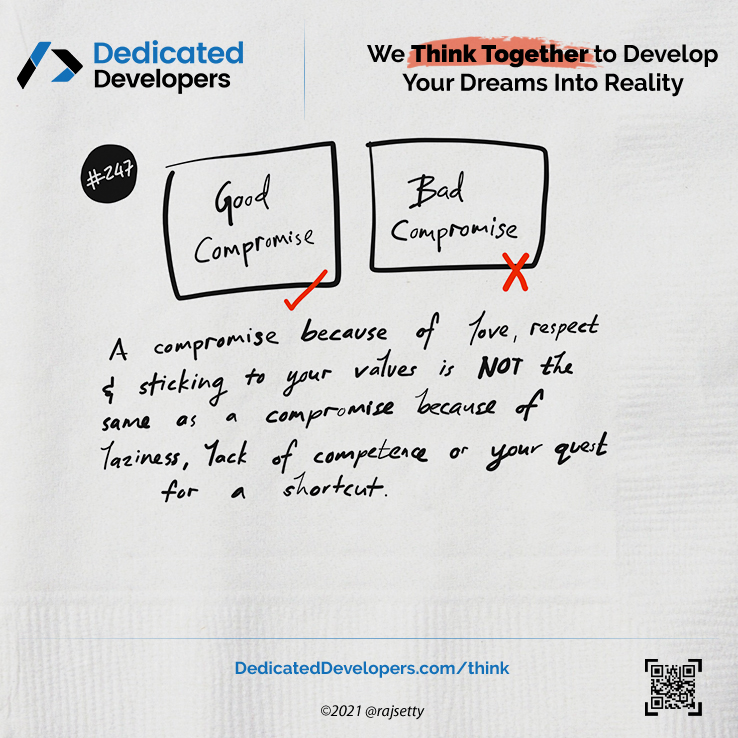 Dedicated
Developers
We Think Together to Develop
Your Dreams Into Reality
#247
Good
Compromise
Bad
Compromise
A compromise because of love, respect
& sticking to your values is NOT the
same as a compromise because of
laziness, lack of competence or your quest
for a shortcut.
DedicatedDevelopers.com/think
©2021 @rajsetty